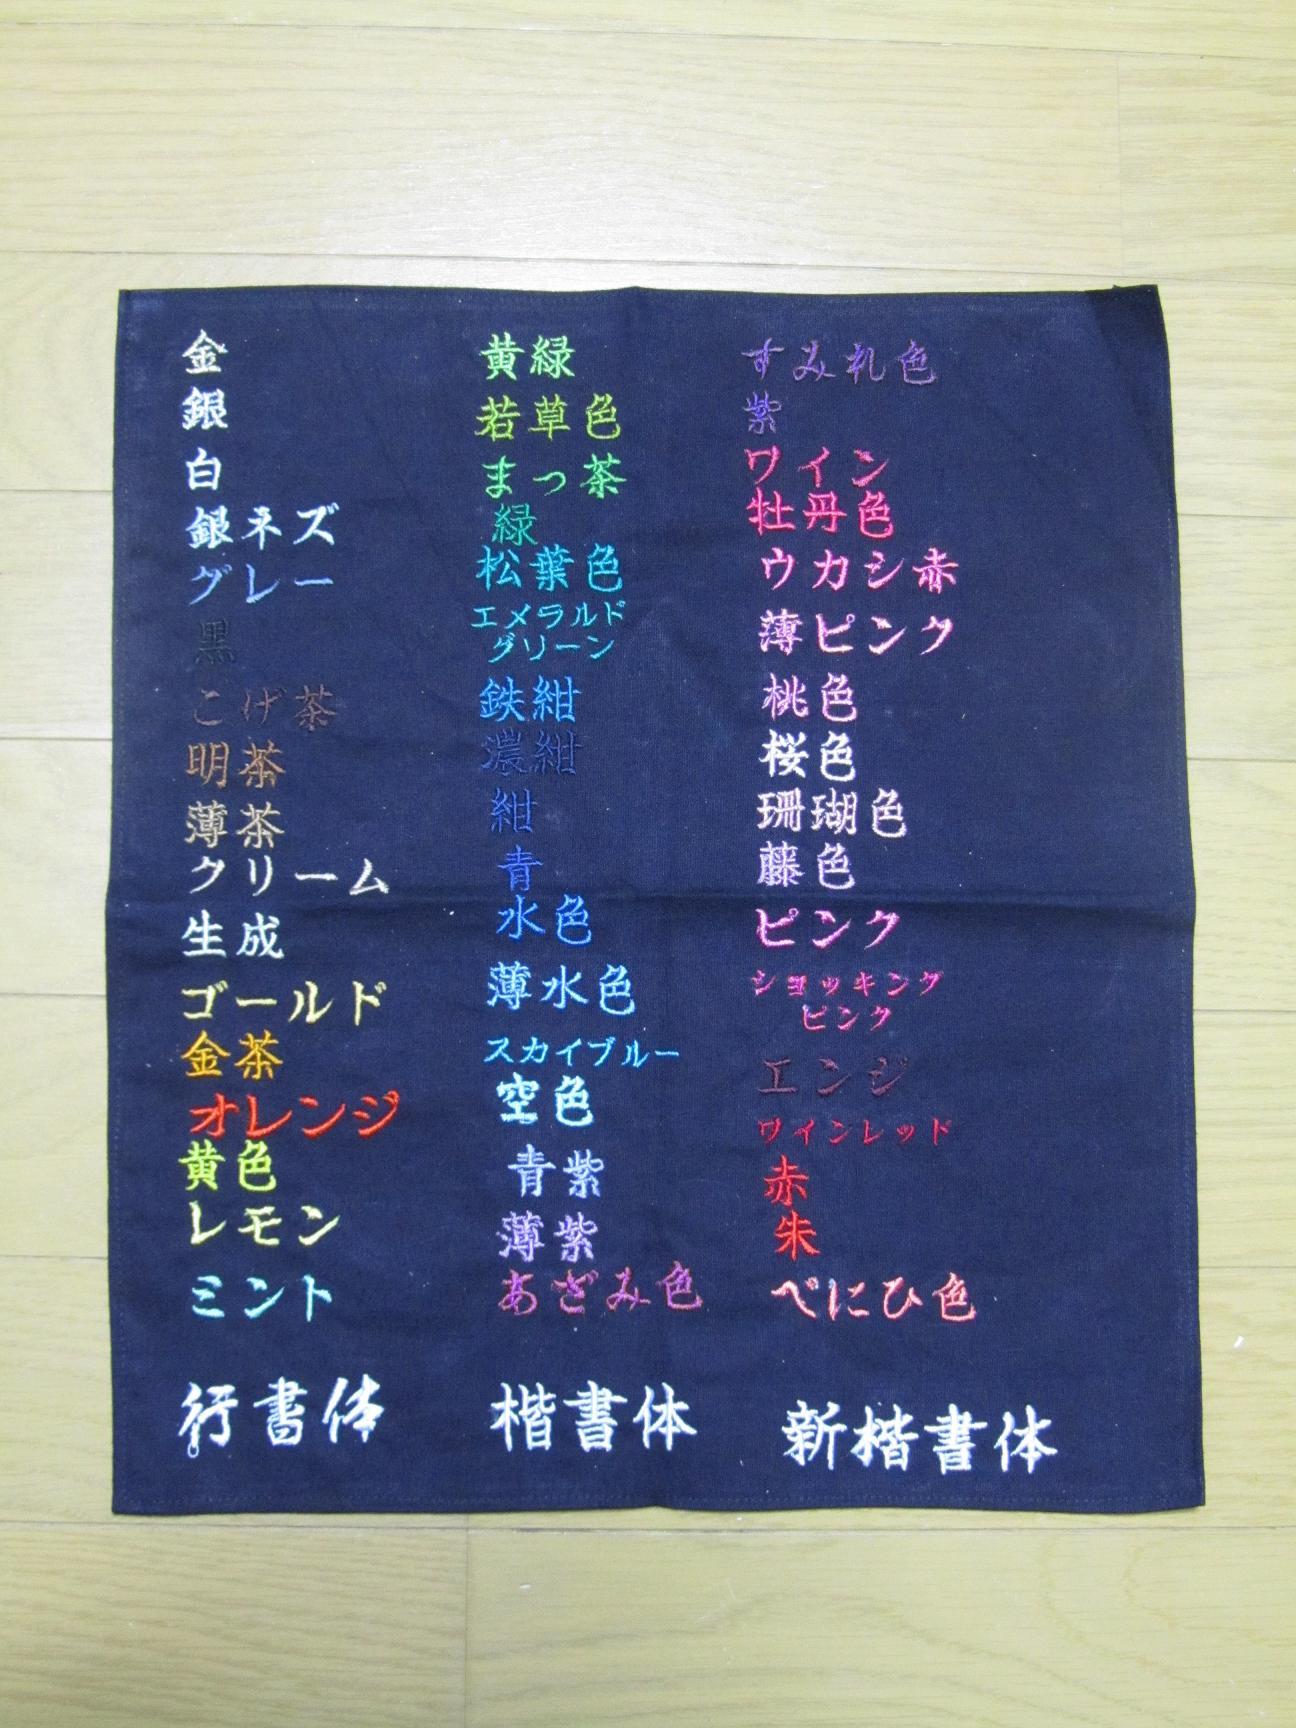 金
銀
白
銀ネズ
グレー
黒
こげ茶
明茶
薄茶
クリーム
生成
ゴールド
金茶
オレンジ
黄色
レモン
ミント
行書体
黄緑
若草色
まっ茶
緑
松葉色
エメラルド
グリーン
鉄紺
濃紺
紺
青
水色
薄水色
スカイブルー
空色
青紫
薄紫
あざみ色
楷書体
すみれ色
紫
ワイン
牡丹色
ウカシ赤
薄ピンク
桃色
桜色
珊瑚色
藤色
ピンク
ショッキング
ピンク
エンジ
ワインレッド
赤
朱
べにひ色
新楷書体